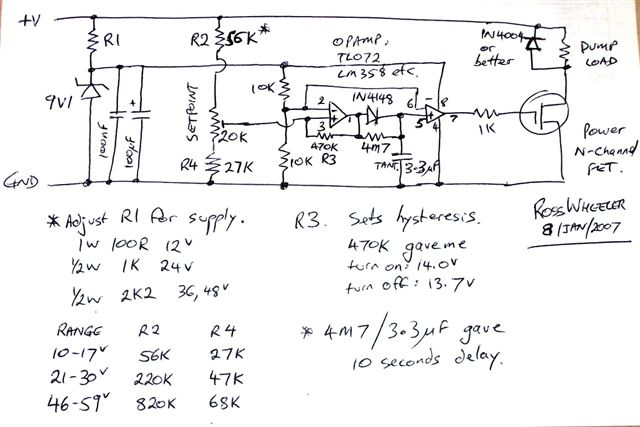 +V
R1
R2
56K*
OPAMP:
TL072
LM358 etc.
1N4004
or
better
DUMP
LOAD
9V1
100nF
+
100µF
SETPOINT
20K
R4
27K
10K
10K
2
3
1
-
+
470K
R3
1N4148
4M7
TANT.
3.3µF
6
5
8
4
7
-
+
1K
Power
N-Channel
FET.
GND
ROSS WHEELER
8/JAN/2007
* Adjust R1 for supply.
1W 100R 12V
1/2W 1K 24V
1/2W 2K2 36,48V
RANGE R2 R4
10-17V 56K 27K
21-30V 220K 47K
46-59V 820K 68K
R3. Sets hysteresis.
470K gave me
turn on: 14.0V
turn off: 13.7V
* 4M7/3.3µF gave
10 seconds delay.